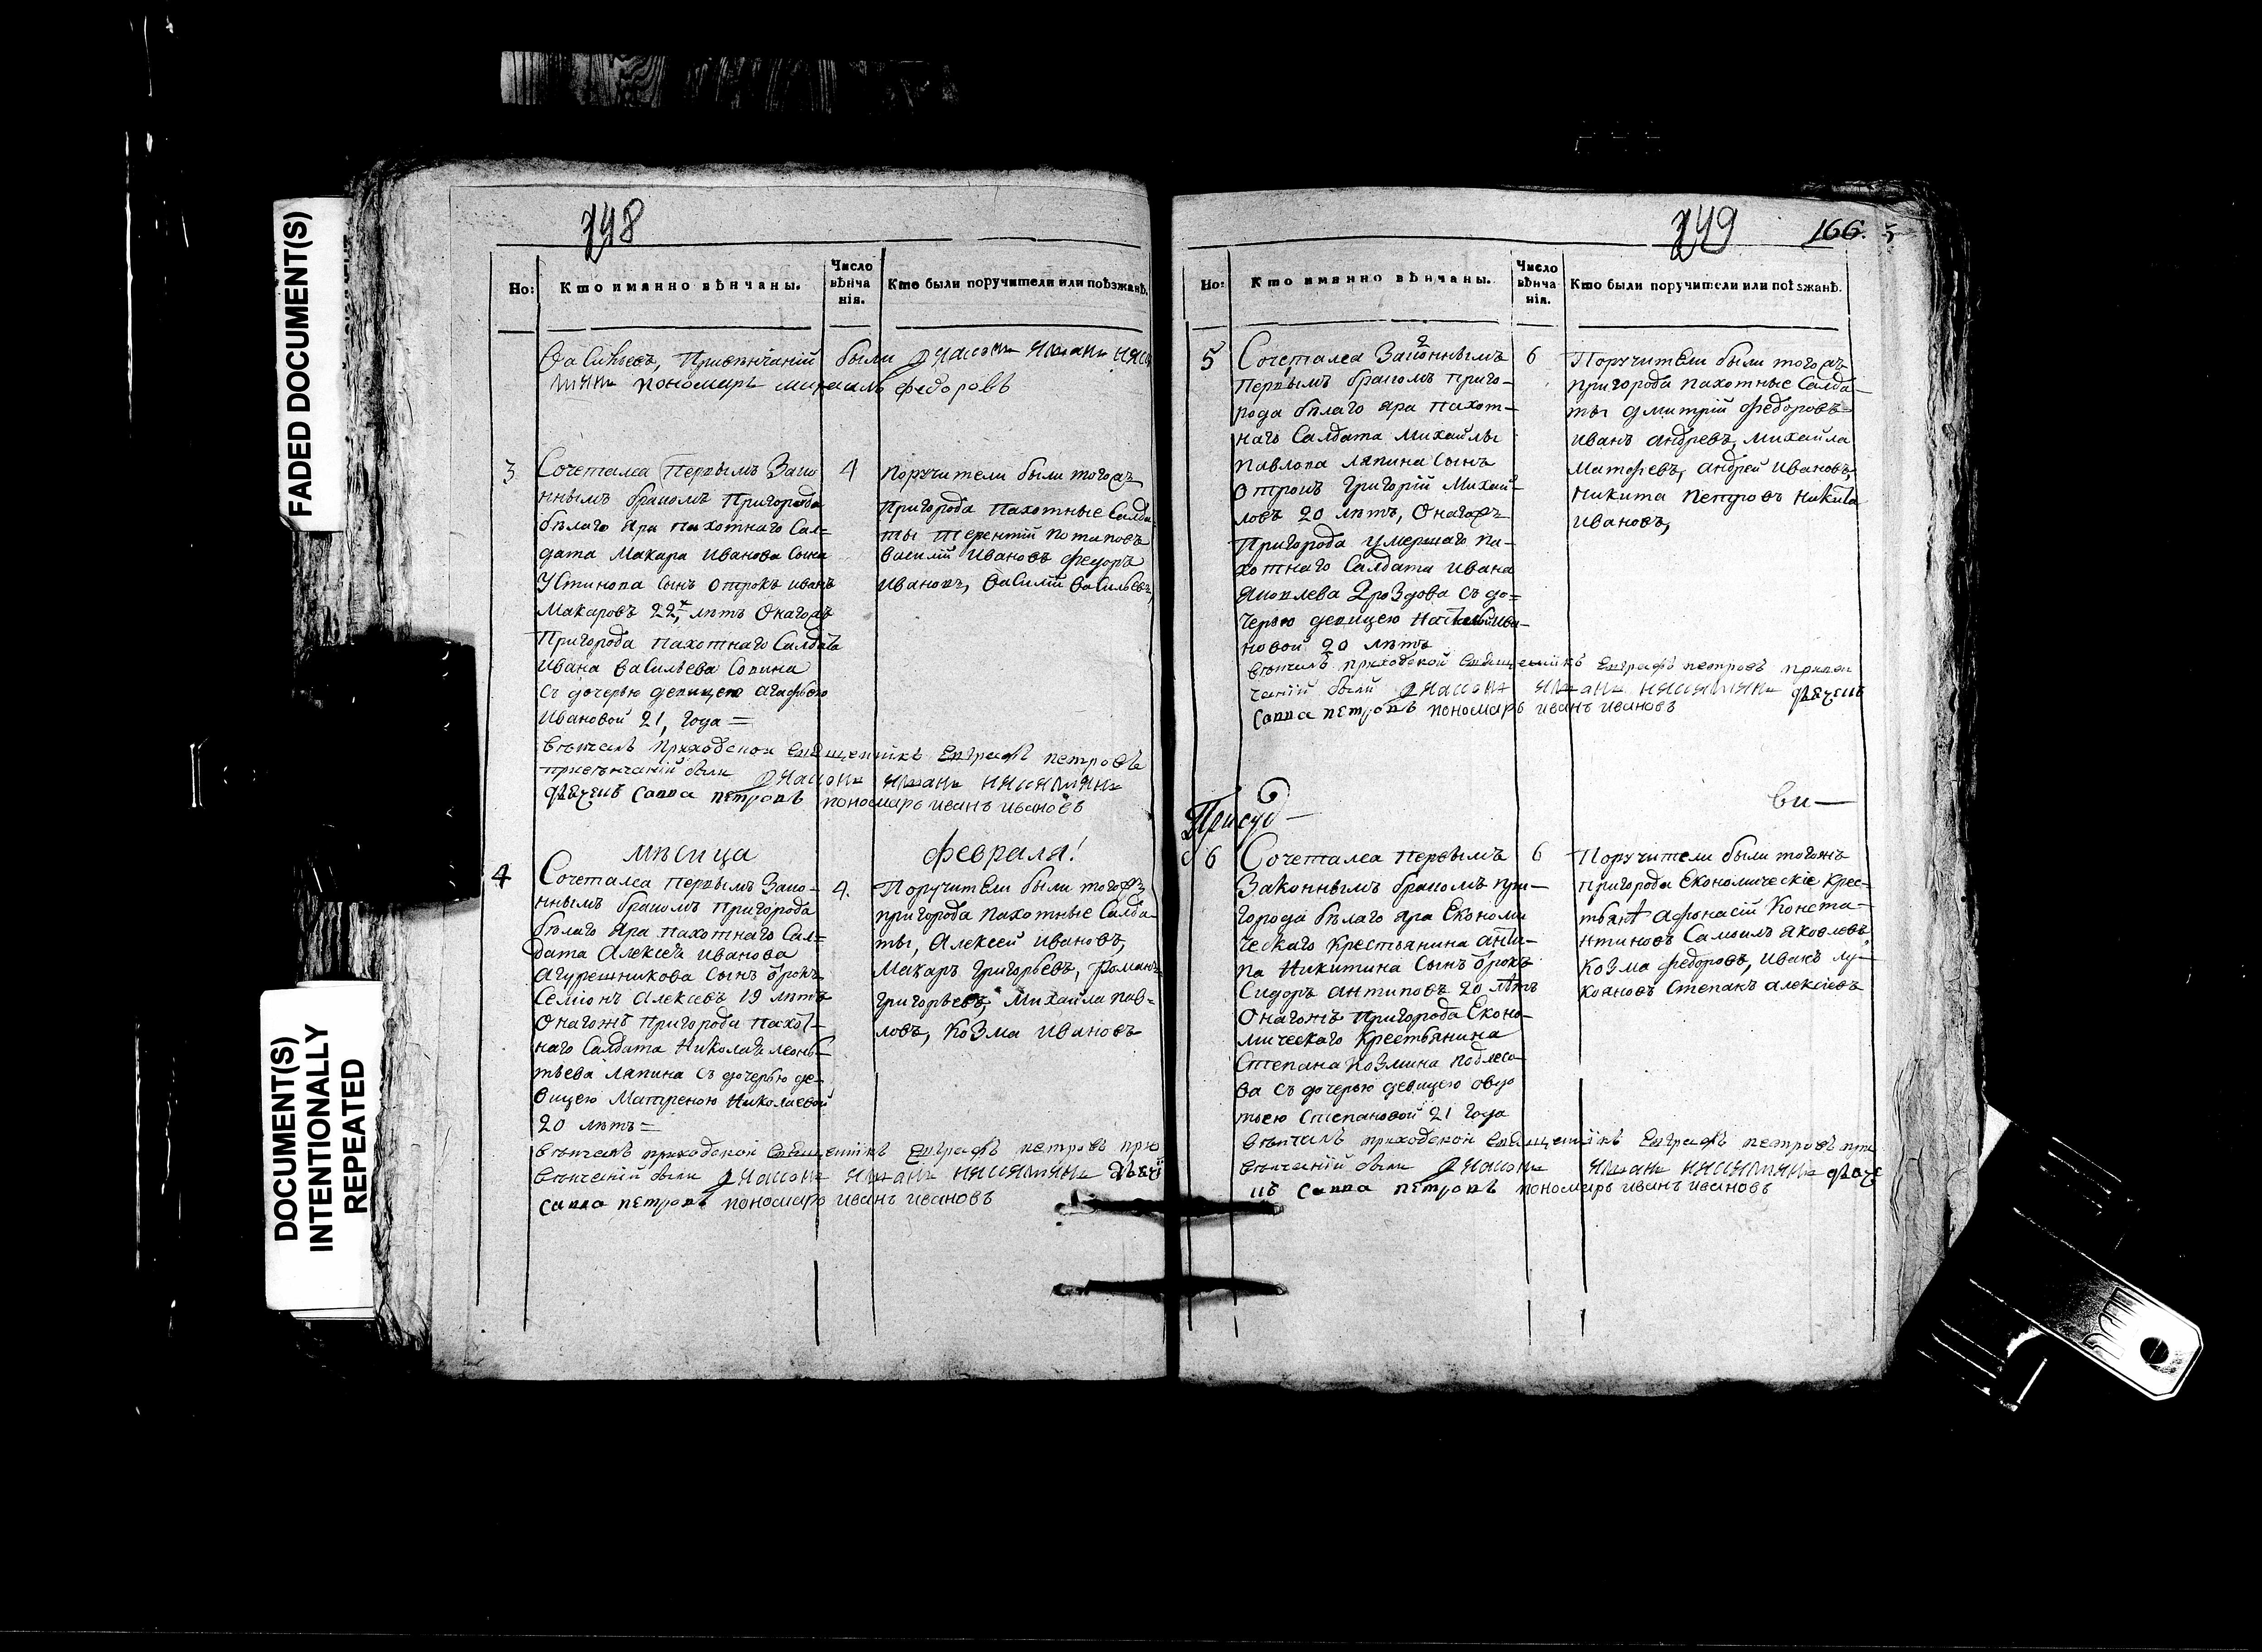 FADED DOCUMENT(S)
DOCUMENT(S)
INTENTIONALLY
REPEATED
748
Но:
Кто имянно вѣнчаны.
Число
вѣнча
нія.
Кто были поручители или поѣзжанѣ.
Васильевъ, Привѣнчаніи были
пономарь михаилъ федоровъ
3
Сочеталса Первымъ Зако
ннымъ бракомъ Пригорода
бѣлаго Яра пахотнаго Сал=
дата Макара Иванова Сына
Устинова Сынъ отрокъ иванъ
Макаровъ 22, лѣтъ Онагожъ
Пригорода пахотнаго Салдата
Ивана Васильева Сопина
съ дочерью девицею агафьею
Ивановой 21, года =
4
поручители были тогожъ
Пригорода Пахотные Салда
ты терентій потаповъ
василій Ивановъ федоръ
Ивановъ, Василій Васильевъ,
вѣнчалъ приходской священникъ Евграфъ петровъ
привѣнчаніи были
дьячекъ савва петровъ пономарь иванъ ивановъ
мѣсица февраля!
4
Сочеталса первымъ Зако-
ннымъ бракомъ Пригорода
бѣлаго Яра пахотнаго Сал=
дата Алексея иванова
Агурешникова Сынъ отрокъ
Семіонъ Алексевъ 19 лѣтъ
Онагожъ Пригорода пахот-
наго Салдата Николая леонь
тьева ляпина съ дочерью де-
вицею Матреною Николаевой
20 лѣтъ =
4.
Поручители были тогожъ
пригорода пахотные Салда-
ты, Алексеи ивановъ,
Макаръ григорьевъ, романъ
григорьевъ, Михаила пав=
ловъ, Козма Ивановъ
вѣнчалъ приходской священникъ Евграфъ петровъ при
вѣнченіи были
савва петровъ пономарь иванъ ивановъ
749
166.
Но:
Кто имянно вѣнчаны.
Число
вѣнча
нія.
Кто были поручители или поѣзжанѣ.
5
Сочеталса Законнымъ
Первымъ бракомъ приго-
рода бѣлаго яра пахот-
наго Салдата Михайлы
павлова ляпина Сынъ
отрокъ григорій Михай-
ловъ 20 лѣтъ, Онагожъ
Пригорода умершаго па-
хотнаго Салдата ивана
яковлева Дроздова съ до=
черью девицею
новой 20 лѣтъ
6
Поручители были тогожъ
пригорода пахотные Салда-
ты дмитрій федоровъ-
иванъ андревъ, михайла
матфевъ, андрей ивановъ,
никита петровъ никита
Ивановъ,
вѣнчалъ приходской священникъ Евграфъ петровъ привен
чаніи были дьячекъ
савва петровъ пономарь иванъ ивановъ
6
Сочеталса первымъ
Законнымъ бракомъ при-
города бѣлаго яра Економи
ческаго крестьянина анти-
па Никитина Сынъ отрокъ
Сидоръ антиповъ 20 лѣтъ
Онагожъ пригорода Еконо-
мическаго Крестьянина
Степана Козмина подлесо-
ва съ дочерью девицею овдо
тьею Степановой 21 года
6
Поручители были тогожъ
пригорода Економическіе крес-
тьянѣ афонасій Конста-
нтиновъ Самоилъ яковлевъ
Козма федоровъ, иванъ лу-
кояновъ Степанъ алексіевъ
вѣнчалъ приходской священникъ Евграфъ петровъ при
вѣнченіи были дьяче
къ савва петровъ пономарь иванъ ивановъ